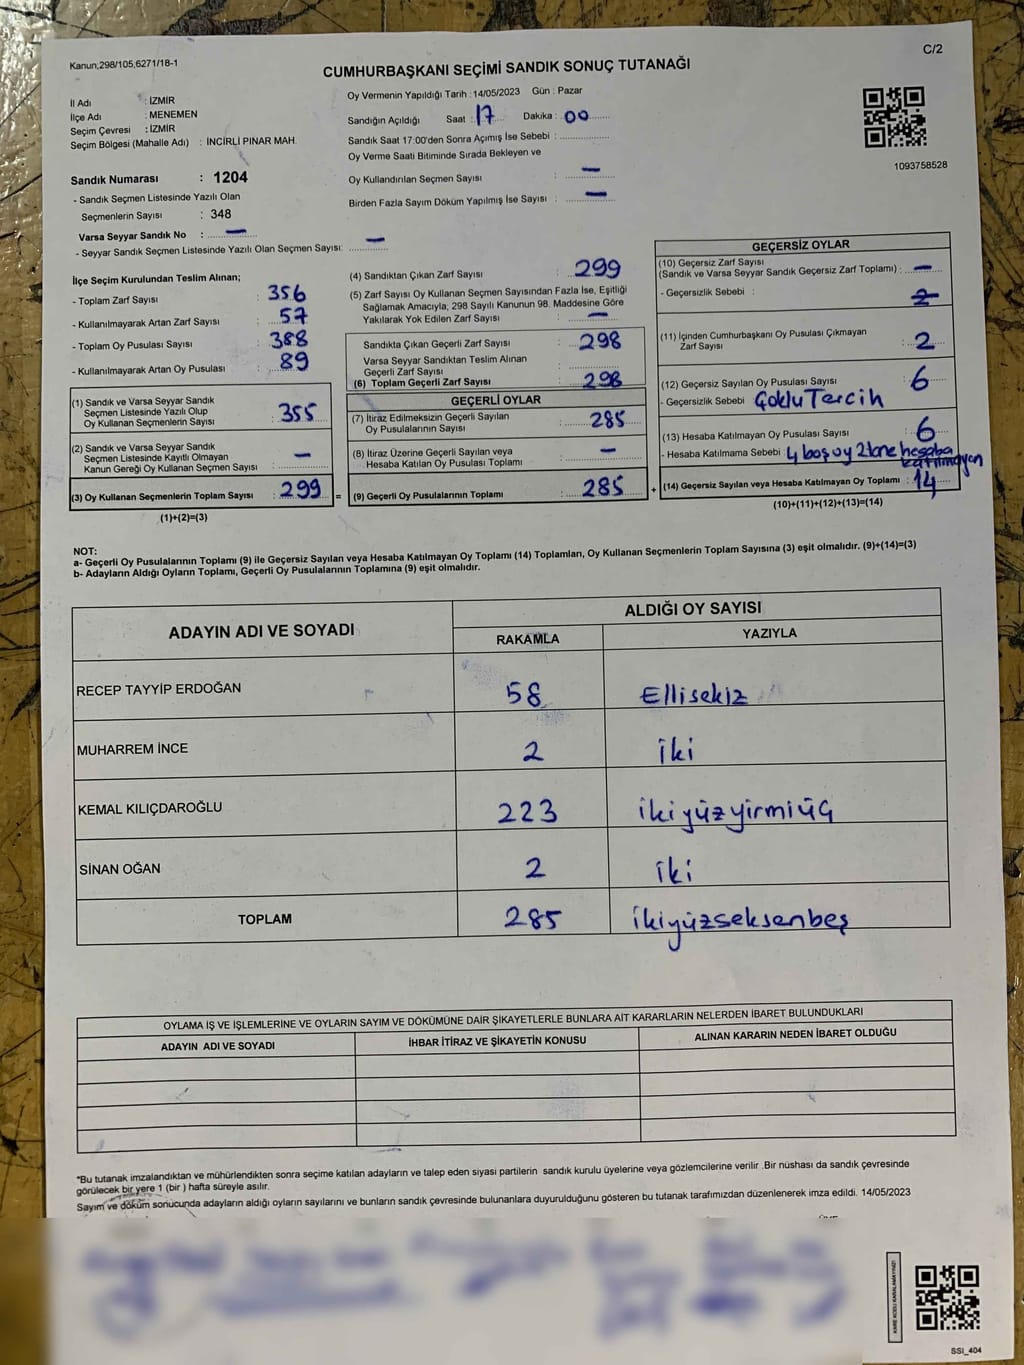 Kanun;298/105,6271/18-1
C/2
CUMHURBAŞKANI SEÇİMİ SANDIK SONUÇ TUTANAĞI
İl Adı : İZMİR
İlçe Adı : MENEMEN
Seçim Çevresi : İZMİR
Seçim Bölgesi (Mahalle Adı) : İNCİRLİ PINAR MAH.
Sandık Numarası : 1204
- Sandık Seçmen Listesinde Yazılı Olan
Seçmenlerin Sayısı : 348
Varsa Seyyar Sandık No : —
- Seyyar Sandık Seçmen Listesinde Yazılı Olan Seçmen Sayısı: —
Oy Vermenin Yapıldığı Tarih : 14/05/2023 Gün : Pazar
Sandığın Açıldığı Saat : 17 Dakika : 00
Sandık Saat 17:00'den Sonra Açımış İse Sebebi :
Oy Verme Saati Bitiminde Sırada Bekleyen ve
Oy Kullandırılan Seçmen Sayısı : —
Birden Fazla Sayım Döküm Yapılmış İse Sayısı : —
1093758528
İlçe Seçim Kurulundan Teslim Alınan;
- Toplam Zarf Sayısı : 356
- Kullanılmayarak Artan Zarf Sayısı : 57
- Toplam Oy Pusulası Sayısı : 388
- Kullanılmayarak Artan Oy Pusulası : 89
(1) Sandık ve Varsa Seyyar Sandık
Seçmen Listesinde Yazılı Olup
Oy Kullanan Seçmenlerin Sayısı : 355
(2) Sandık ve Varsa Seyyar Sandık
Seçmen Listesinde Kayıtlı Olmayan
Kanun Gereği Oy Kullanan Seçmen Sayısı : —
(3) Oy Kullanan Seçmenlerin Toplam Sayısı : 299 =
(1)+(2)=(3)
(4) Sandıktan Çıkan Zarf Sayısı : 299
(5) Zarf Sayısı Oy Kullanan Seçmen Sayısından Fazla İse, Eşitliği
Sağlamak Amacıyla; 298 Sayılı Kanunun 98. Maddesine Göre
Yakılarak Yok Edilen Zarf Sayısı : —
Sandıkta Çıkan Geçerli Zarf Sayısı : 298
Varsa Seyyar Sandıktan Teslim Alınan
Geçerli Zarf Sayısı :
(6) Toplam Geçerli Zarf Sayısı : 298
GEÇERLİ OYLAR
(7) İtiraz Edilmeksizin Geçerli Sayılan
Oy Pusulalarının Sayısı : 285
(8) İtiraz Üzerine Geçerli Sayılan veya
Hesaba Katılan Oy Pusulası Toplamı : —
(9) Geçerli Oy Pusulalarının Toplamı : 285 +
GEÇERSİZ OYLAR
(10) Geçersiz Zarf Sayısı
(Sandık ve Varsa Seyyar Sandık Geçersiz Zarf Toplamı) : —
- Geçersizlik Sebebi : 2
(11) İçinden Cumhurbaşkanı Oy Pusulası Çıkmayan
Zarf Sayısı : 2
(12) Geçersiz Sayılan Oy Pusulası Sayısı : 6
- Geçersizlik Sebebi Çoklu Tercih
(13) Hesaba Katılmayan Oy Pusulası Sayısı : 6
- Hesaba Katılmama Sebebi 4 boş oy 2 tane hesaba
katılmayan
(14) Geçersiz Sayılan veya Hesaba Katılmayan Oy Toplamı : 14
(10)+(11)+(12)+(13)=(14)
NOT:
a- Geçerli Oy Pusulalarının Toplamı (9) ile Geçersiz Sayılan veya Hesaba Katılmayan Oy Toplamı (14) Toplamları, Oy Kullanan Seçmenlerin Toplam Sayısına (3) eşit olmalıdır. (9)+(14)=(3)
b- Adayların Aldığı Oyların Toplamı, Geçerli Oy Pusulalarının Toplamına (9) eşit olmalıdır.
ADAYIN ADI VE SOYADI
ALDIĞI OY SAYISI
RAKAMLA YAZIYLA
RECEP TAYYİP ERDOĞAN 58 Ellisekiz
MUHARREM İNCE 2 iki
KEMAL KILIÇDAROĞLU 223 ikiyüzyirmiüç
SİNAN OĞAN 2 iki
TOPLAM 285 ikiyüzseksenbeş
OYLAMA İŞ VE İŞLEMLERİNE VE OYLARIN SAYIM VE DÖKÜMÜNE DAİR ŞİKAYETLERLE BUNLARA AİT KARARLARIN NELERDEN İBARET BULUNDUKLARI
ADAYIN ADI VE SOYADI İHBAR İTİRAZ VE ŞİKAYETİN KONUSU ALINAN KARARIN NEDEN İBARET OLDUĞU
*Bu tutanak imzalandıktan ve mühürlendikten sonra seçime katılan adayların ve talep eden siyasi partilerin sandık kurulu üyelerine veya gözlemcilerine verilir .Bir nüshası da sandık çevresinde
görülecek bir yere 1 (bir ) hafta süreyle asılır.
Sayım ve döküm sonucunda adayların aldığı oyların sayılarını ve bunların sandık çevresinde bulunanlara duyurulduğunu gösteren bu tutanak tarafımızdan düzenlenerek imza edildi. 14/05/2023
KARE KODU KARALAMAYINIZ!
SSI_404